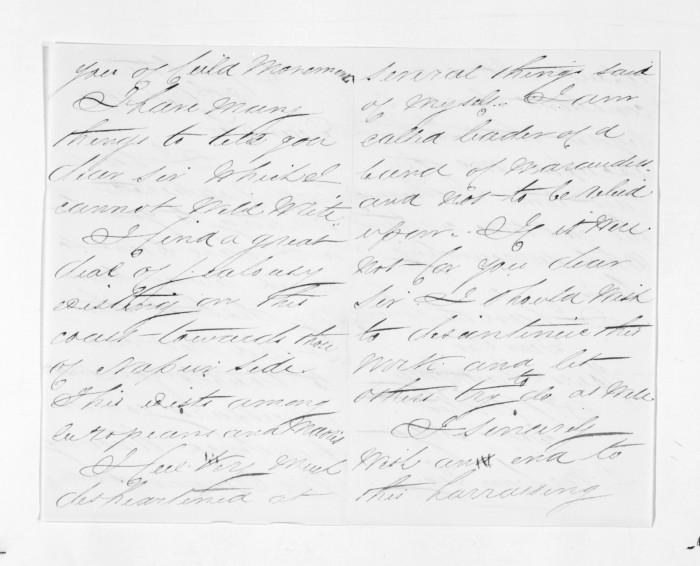 you of field movements
I have many
things to tell you
dear Sir which I
cannot well write
I find a great
deal of jealousy
existing on this
coast towards those
of Napier side.
This exists among
Europeans and Maoris
I feel very much
disheartened at
several things said
of myself. I am
called leader of a
band of marauders
and not to be relied
upon. If it were
not for you dear
Sir I should wish
to discontinue this
work and let
others try to do as well
I sincerely
wish an end to
this harrassing